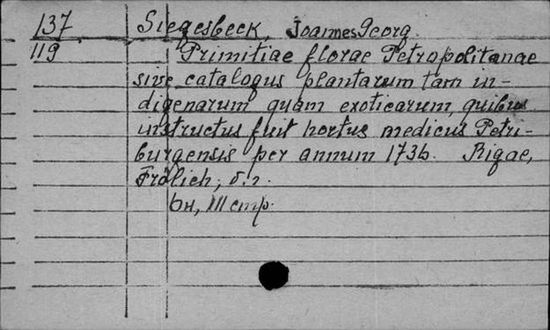 137 Siegesbeck, Joannes Georg.
119 Primitiae florae Petropolitanae
sive catalogus plantarum tam in-
digenarum quam exoticarum, quibus
instructus fuit hortus medicus Petri-
burgensis per annum 1736. Rigae,
Frölich,
6н, III стр.